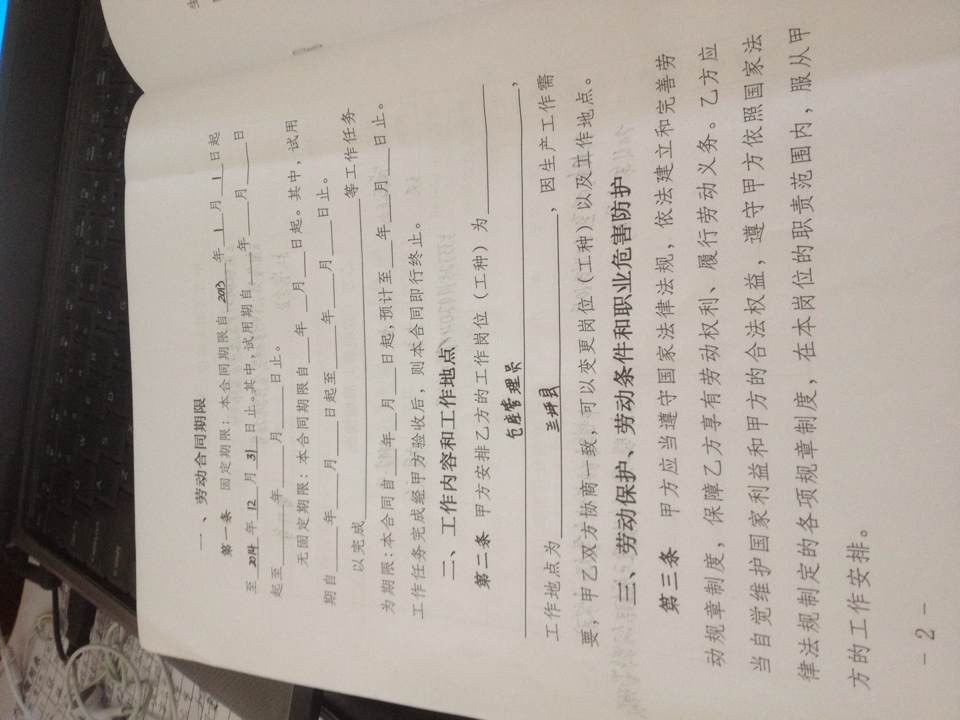 一、劳动合同期限
第一条 固定期限：本合同期限自 2013 年 1 月 1 日起
至 2014 年 12 月 31 日止。其中，试用期自 年 月 日
起至 年 月 日止。
无固定期限：本合同期限自 年 月 日起。其中，试用
期自 年 月 日起至 年 月 日止。
以完成 等工作任务
为期限：本合同自 年 月 日起，预计至 年 月 日止。
工作任务完成经甲方验收后，则本合同即行终止。
二、工作内容和工作地点
第二条 甲方安排乙方的工作岗位（工种）为
仓库管理员 ，
工作地点为 兰坪县 ，因生产工作需
要，甲乙双方协商一致，可以变更岗位（工种）以及工作地点。
三、劳动保护、劳动条件和职业危害防护
第三条 甲方应当遵守国家法律法规，依法建立和完善劳
动规章制度，保障乙方享有劳动权利、履行劳动义务。乙方应
当自觉维护国家利益和甲方的合法权益，遵守甲方依照国家法
律法规制定的各项规章制度，在本岗位的职责范围内，服从甲
方的工作安排。
- 2 -